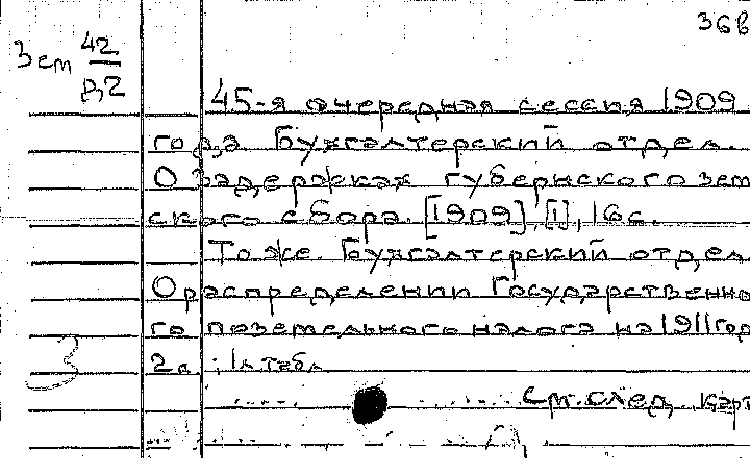 36в
Зем 42
р,2
45-я очередная сессия 1909
года. Бухгалтерский отдел.
О задержках губернского зем
ского сбора. [1909], [1], 16 с.
То же. Бухгалтерский отдел
О распределении Государственно
го поземельного налога на 1911 год
2 с., 1 л. табл
См. след. карт